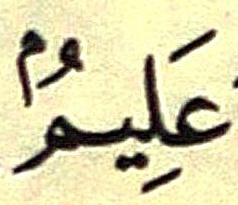 عَلِيمُۢ